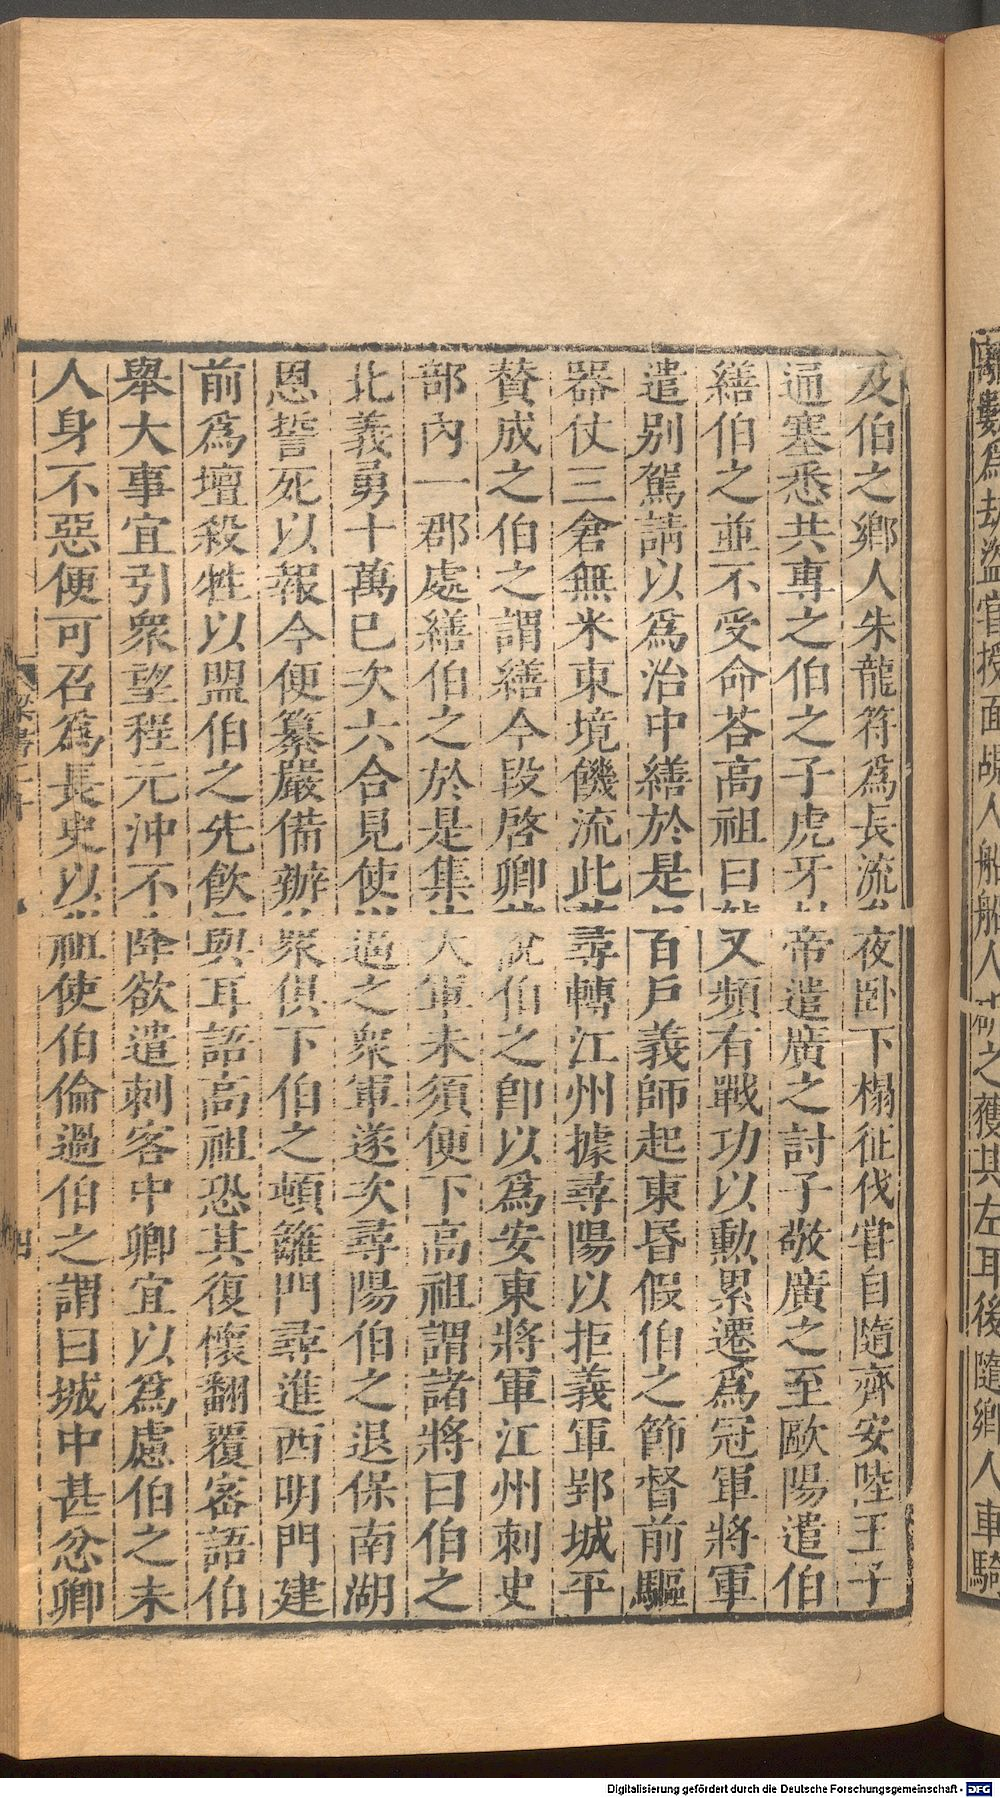 離數爲劫盜嘗授面覘人船船人斫之獲其左耳後隨鄉人車騎
及伯之鄉人朱龍符爲長流夜卧下榻征伐嘗自隨齊安陸王子
通塞悉共專之伯之子虎牙帝遣廣之討子敬廣之至歐陽遣伯
繕伯之並不受命荅高祖曰又頻有戰功以勳累遷爲冠軍將軍
遣别駕請以爲治中繕於是百戶義師起東昏假伯之節督前驅
器仗三倉無米東境饑流此尋轉江州據尋陽以拒義軍郢城平
賛成之伯之謂繕今段啓卿說伯之卽以爲安東將軍江州刺史
部內一郡處繕伯之於是集大軍未須便下高祖謂諸將曰伯之
北義勇十萬已次六合見使逼之衆軍遂次尋陽伯之退保南湖
恩誓死以報今便纂嚴備辦衆俱下伯之頓籬門尋進西明門建
前爲壇殺牲以盟伯之先飲與耳語高祖恐其復懷翻覆密語伯
舉大事宜引衆望程元沖不降欲遣刺客中卿宜以爲慮伯之未
人身不惡便可召爲長史以祖使伯倫過伯之謂曰城中甚忿卿
梁書二十
四
Digitalisierung gefördert durch die Deutsche Forschungsgemeinschaft - DFG